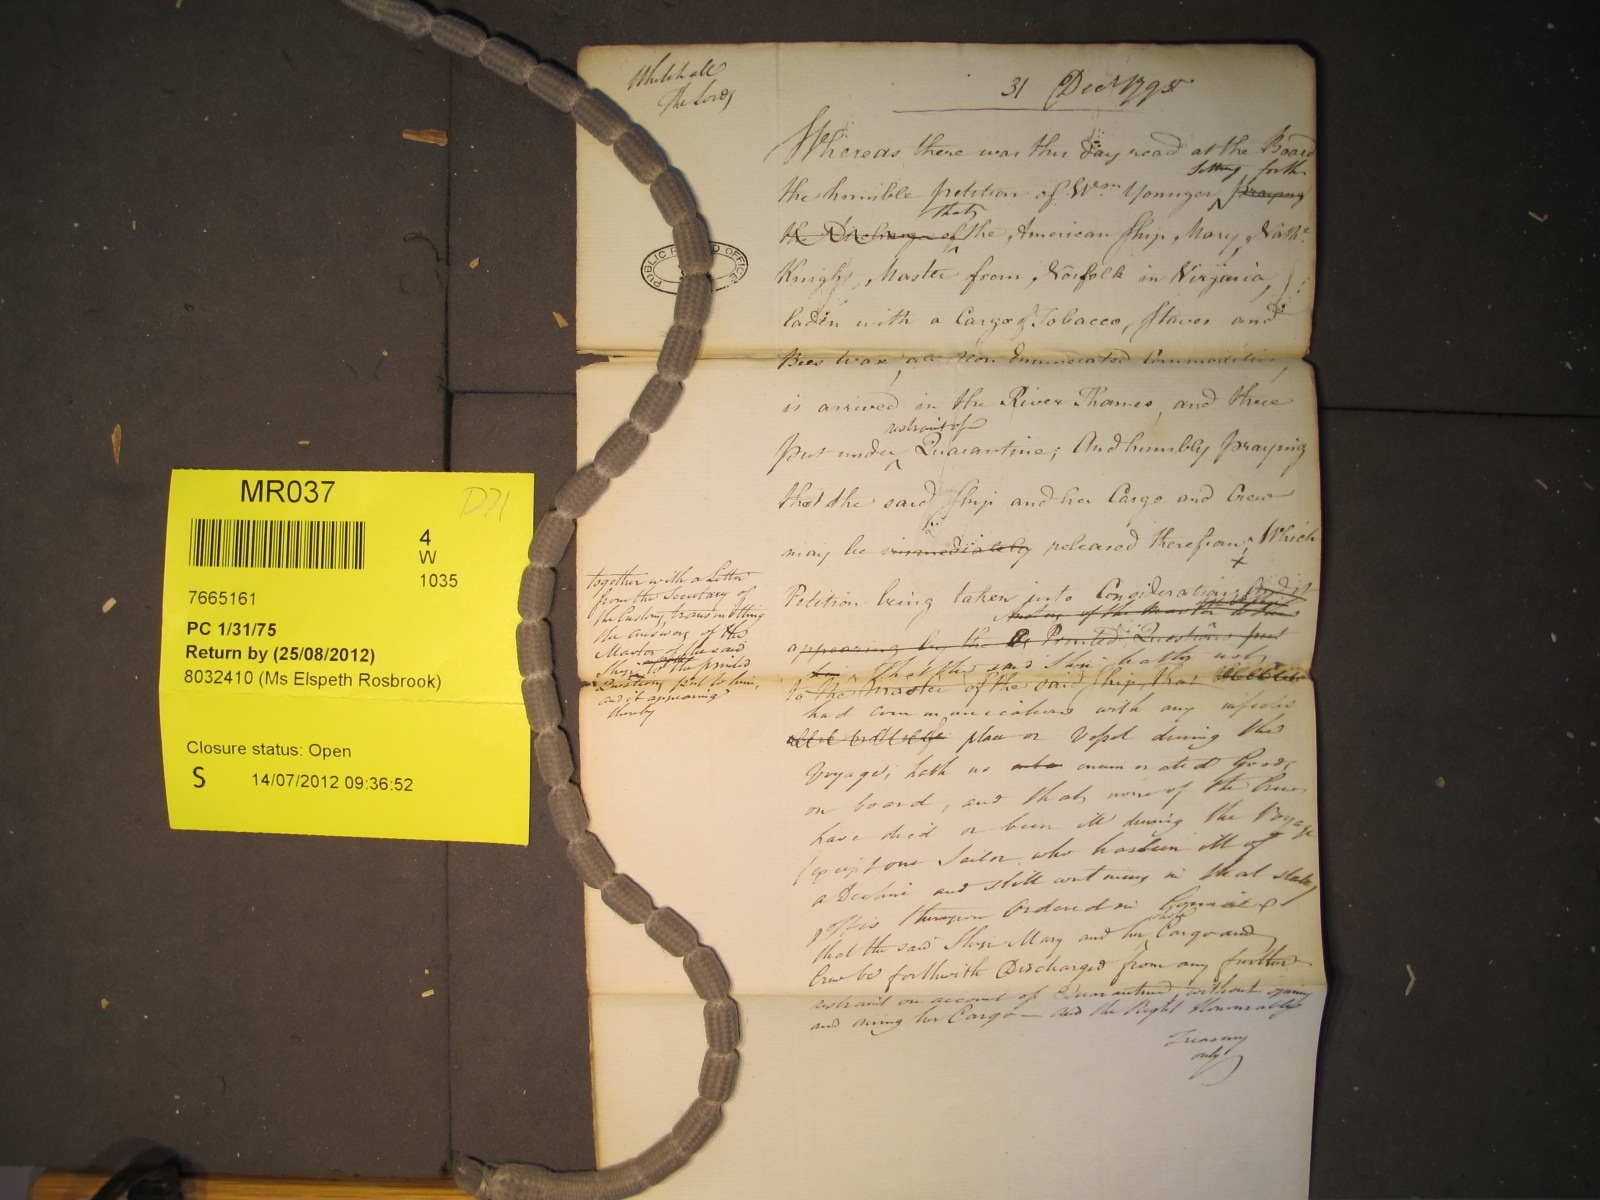 Whitehall
The Lords
31 Decr 1795
Whereas there was this day read at the Board
setting forth
the humble petition of Wm Younger, praying
that
the Discharge of the American Ship Mary, Nathl
Knight, Master from Norfolk in Virginia,
laden with a Cargo of Tobacco, Staves and
Bees wax, all Non Enumerated Commodities
is arrived in the River Thames, and there
restraint of
put under Quarantine; And humbly praying
that the said Ship and her Cargo and Crew
may be immediately released therefrom, Which
x
Petition being taken into Consideration, And it
appearing by the Printed Questions put
That the said Ship hath not
to the Master of the said Ship, that
had communications with any infected
place or Vessel during the
Voyage, hath no enumerated Goods
on board, and that none of the Crew
have died or been ill during the Voyage
(except one Sailor who has been ill of
a Decline and still continues in that state)
It is thereupon Ordered in Council
that the said Ship Mary and her Cargo and
Crew be forthwith Discharged from any further
restraint on account of Quarantine without opening
and airing her Cargo — and the Right Honourable
Treasury
only
together with a Letter
from the Secretary of
the Customs, transmitting
the answers of the
Master of the said
Ship to the printed
Questions put to him,
and it appearing
thereby
PUBLIC RECORD OFFICE
MR037
D71
4
W
1035
7665161
PC 1/31/75
Return by (25/08/2012)
8032410 (Ms Elspeth Rosbrook)
Closure status: Open
S 14/07/2012 09:36:52